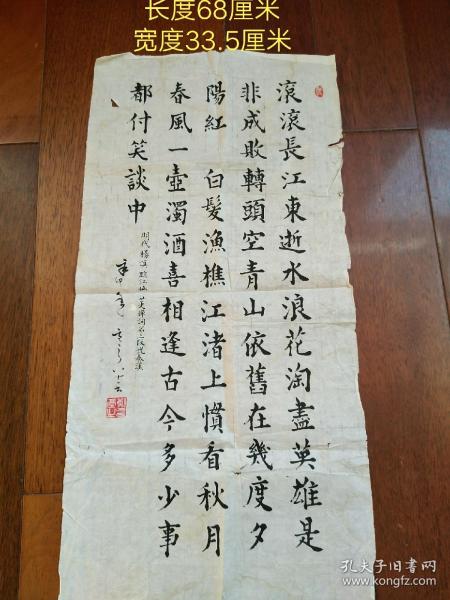 长度68厘米
宽度33.5厘米
滾滾長江東逝水浪花淘盡英雄是
非成敗轉頭空青山依舊在幾度夕
陽紅 白髮漁樵江渚上慣看秋月
春風一壺濁酒喜相逢古今多少事
都付笑談中
孔夫子旧书网
www.kongfz.com